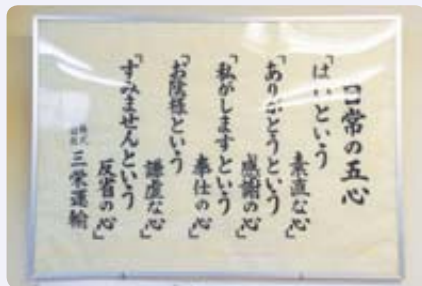 日常の五心
「はいという
素直な心」
「ありがとうという
感謝の心」
「私がしますという
奉仕の心」
「お陰様という
謙虚な心」
「すみませんという
反省の心」
株式会社 三栄運輸